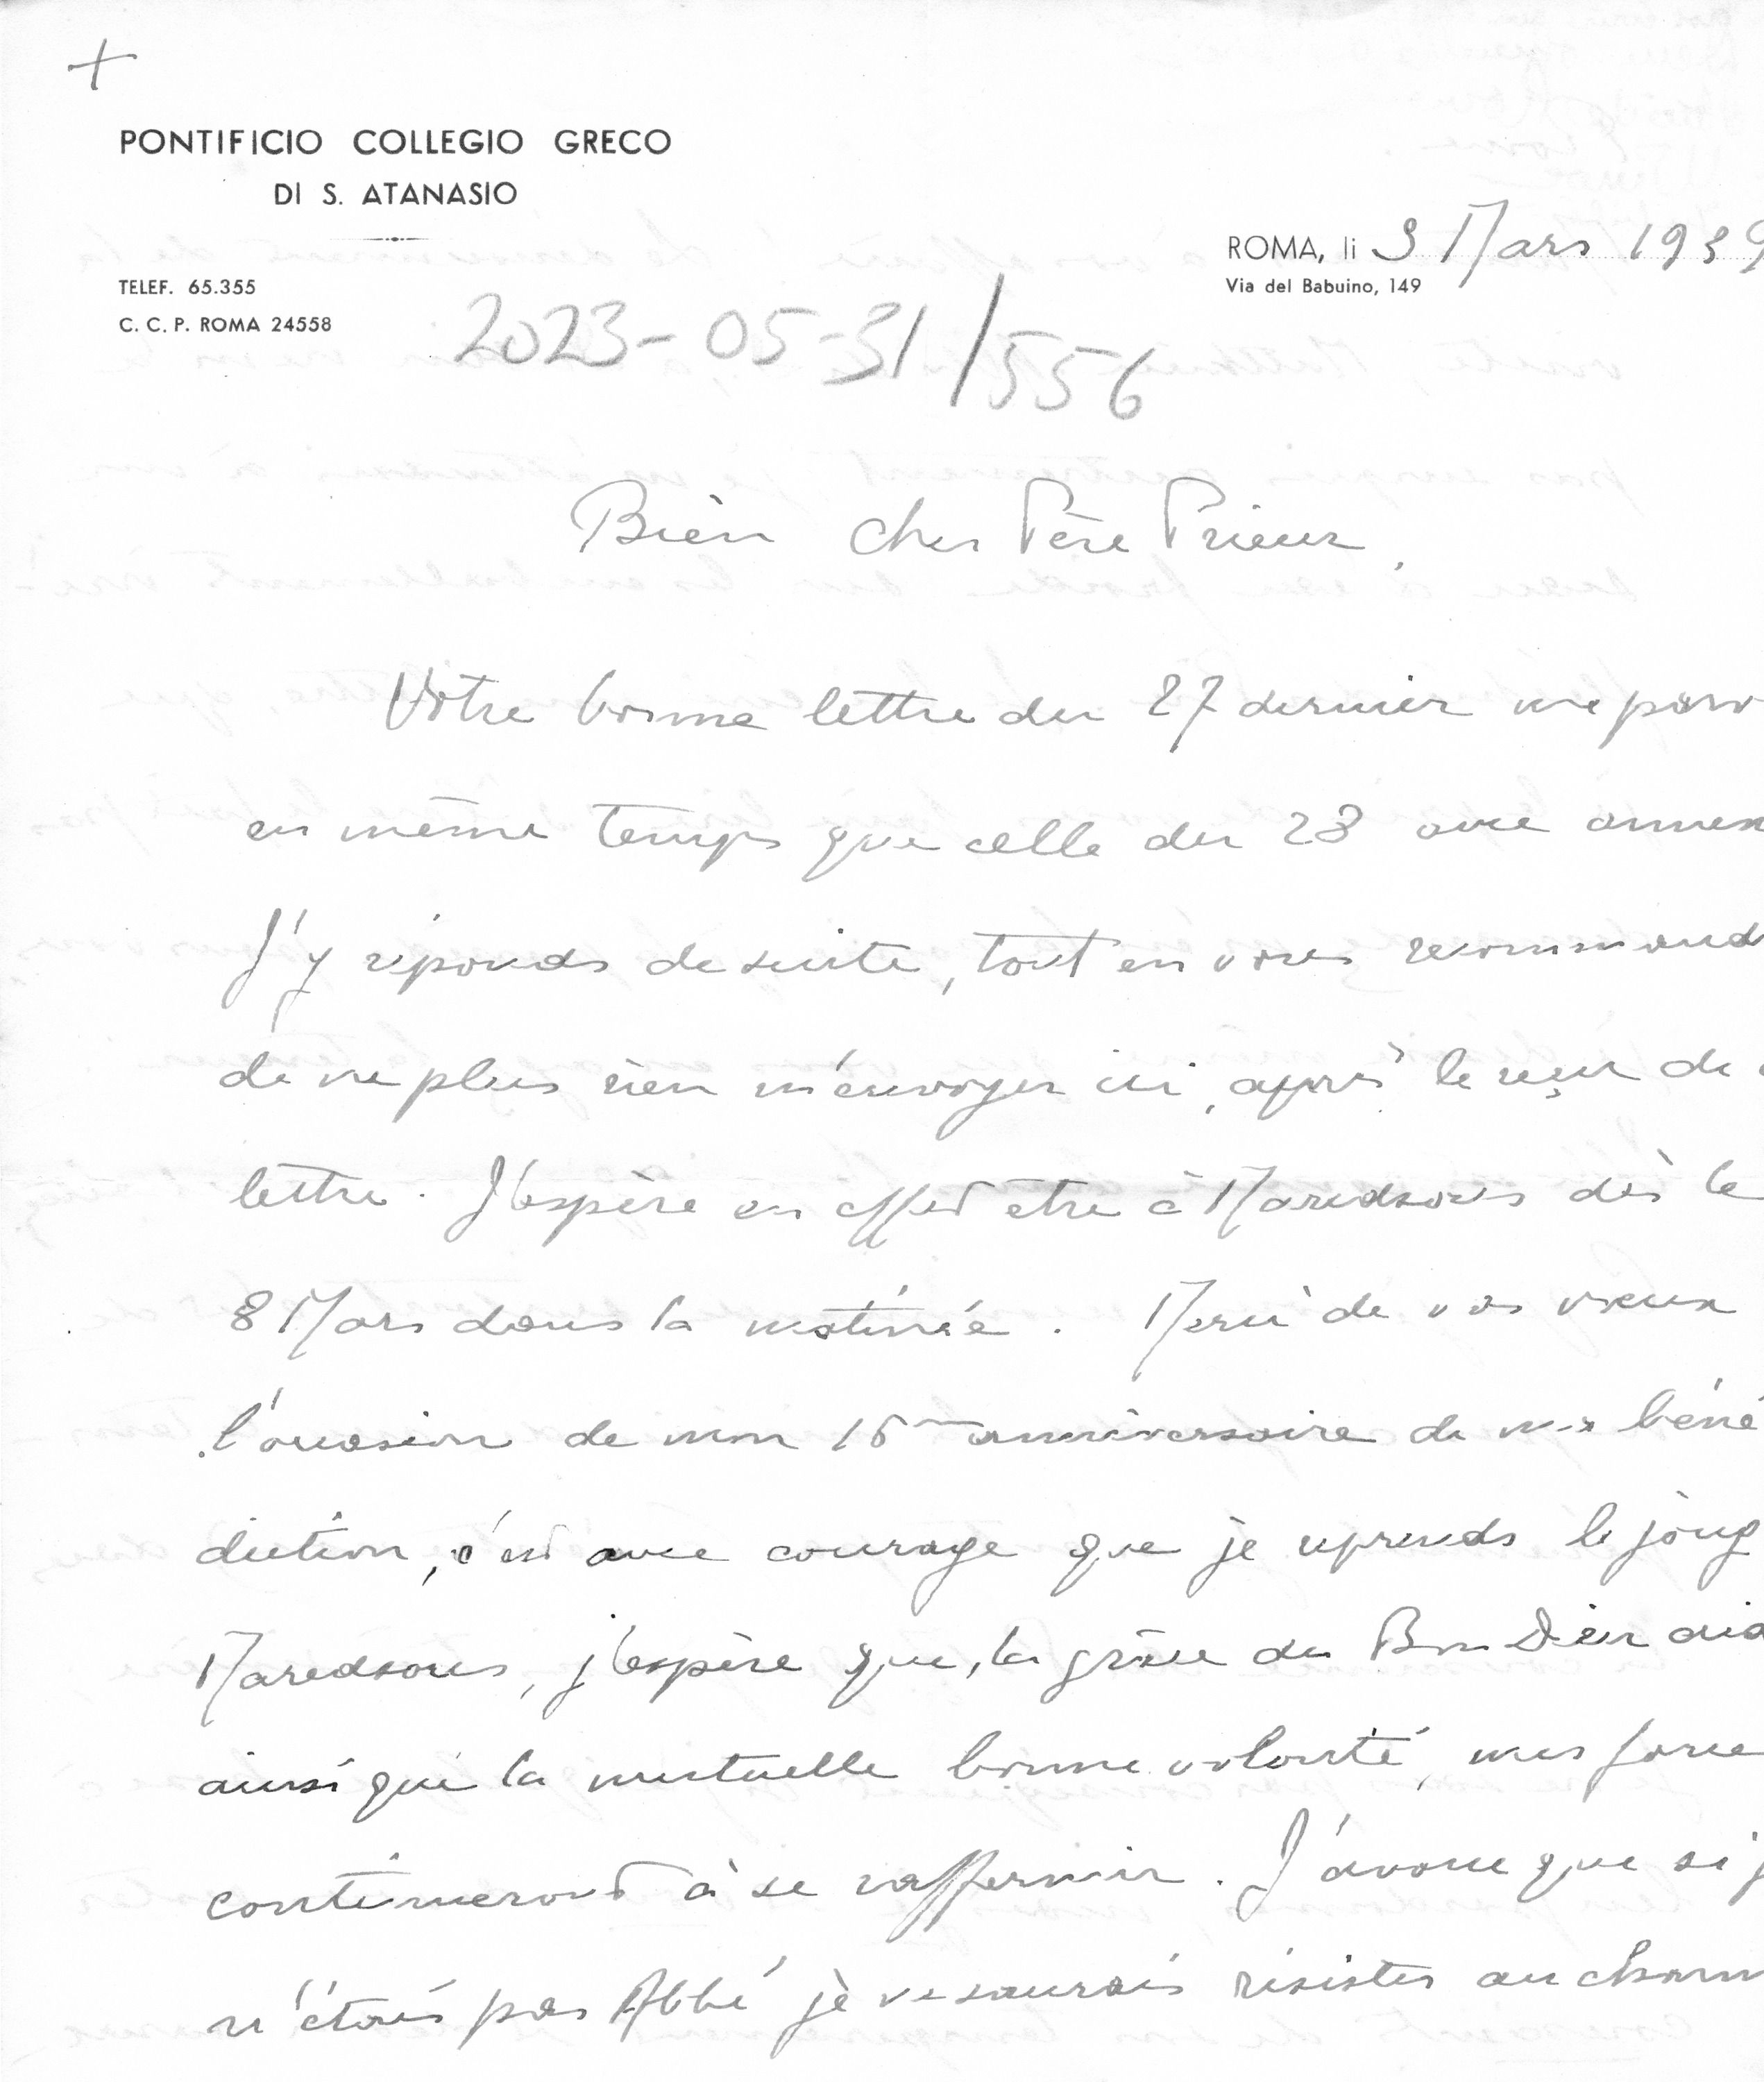 +
PONTIFICIO COLLEGIO GRECO
DI S. ATANASIO
TELEF. 65.355
C. C. P. ROMA 24558
ROMA, li 3 Mars 1939
Via del Babuino, 149
2023-05-31/556
Bien cher Père Prieur,
Votre bonne lettre du 27 dernier me parv
en même temps que celle du 23 avec annex
J'y réponds de suite, tout en vous recommand
de ne plus rien m'envoyer ici, après le reçu de
lettre. J'espère en effet être à Maredsous dès le
8 Mars dans la matinée. Merci de vos vœux
l'occasion de mon 15 anniversaire de ma béné
diction, c'est avec courage que je reprends le joug
Maredsous, j'espère que, la grâce du Bon Dieu aid
ainsi que la mutuelle bonne volonté, mes force
continueront à se raffermir. J'avoue que si j
n'étais pas Abbé je ne saurais résister au charm